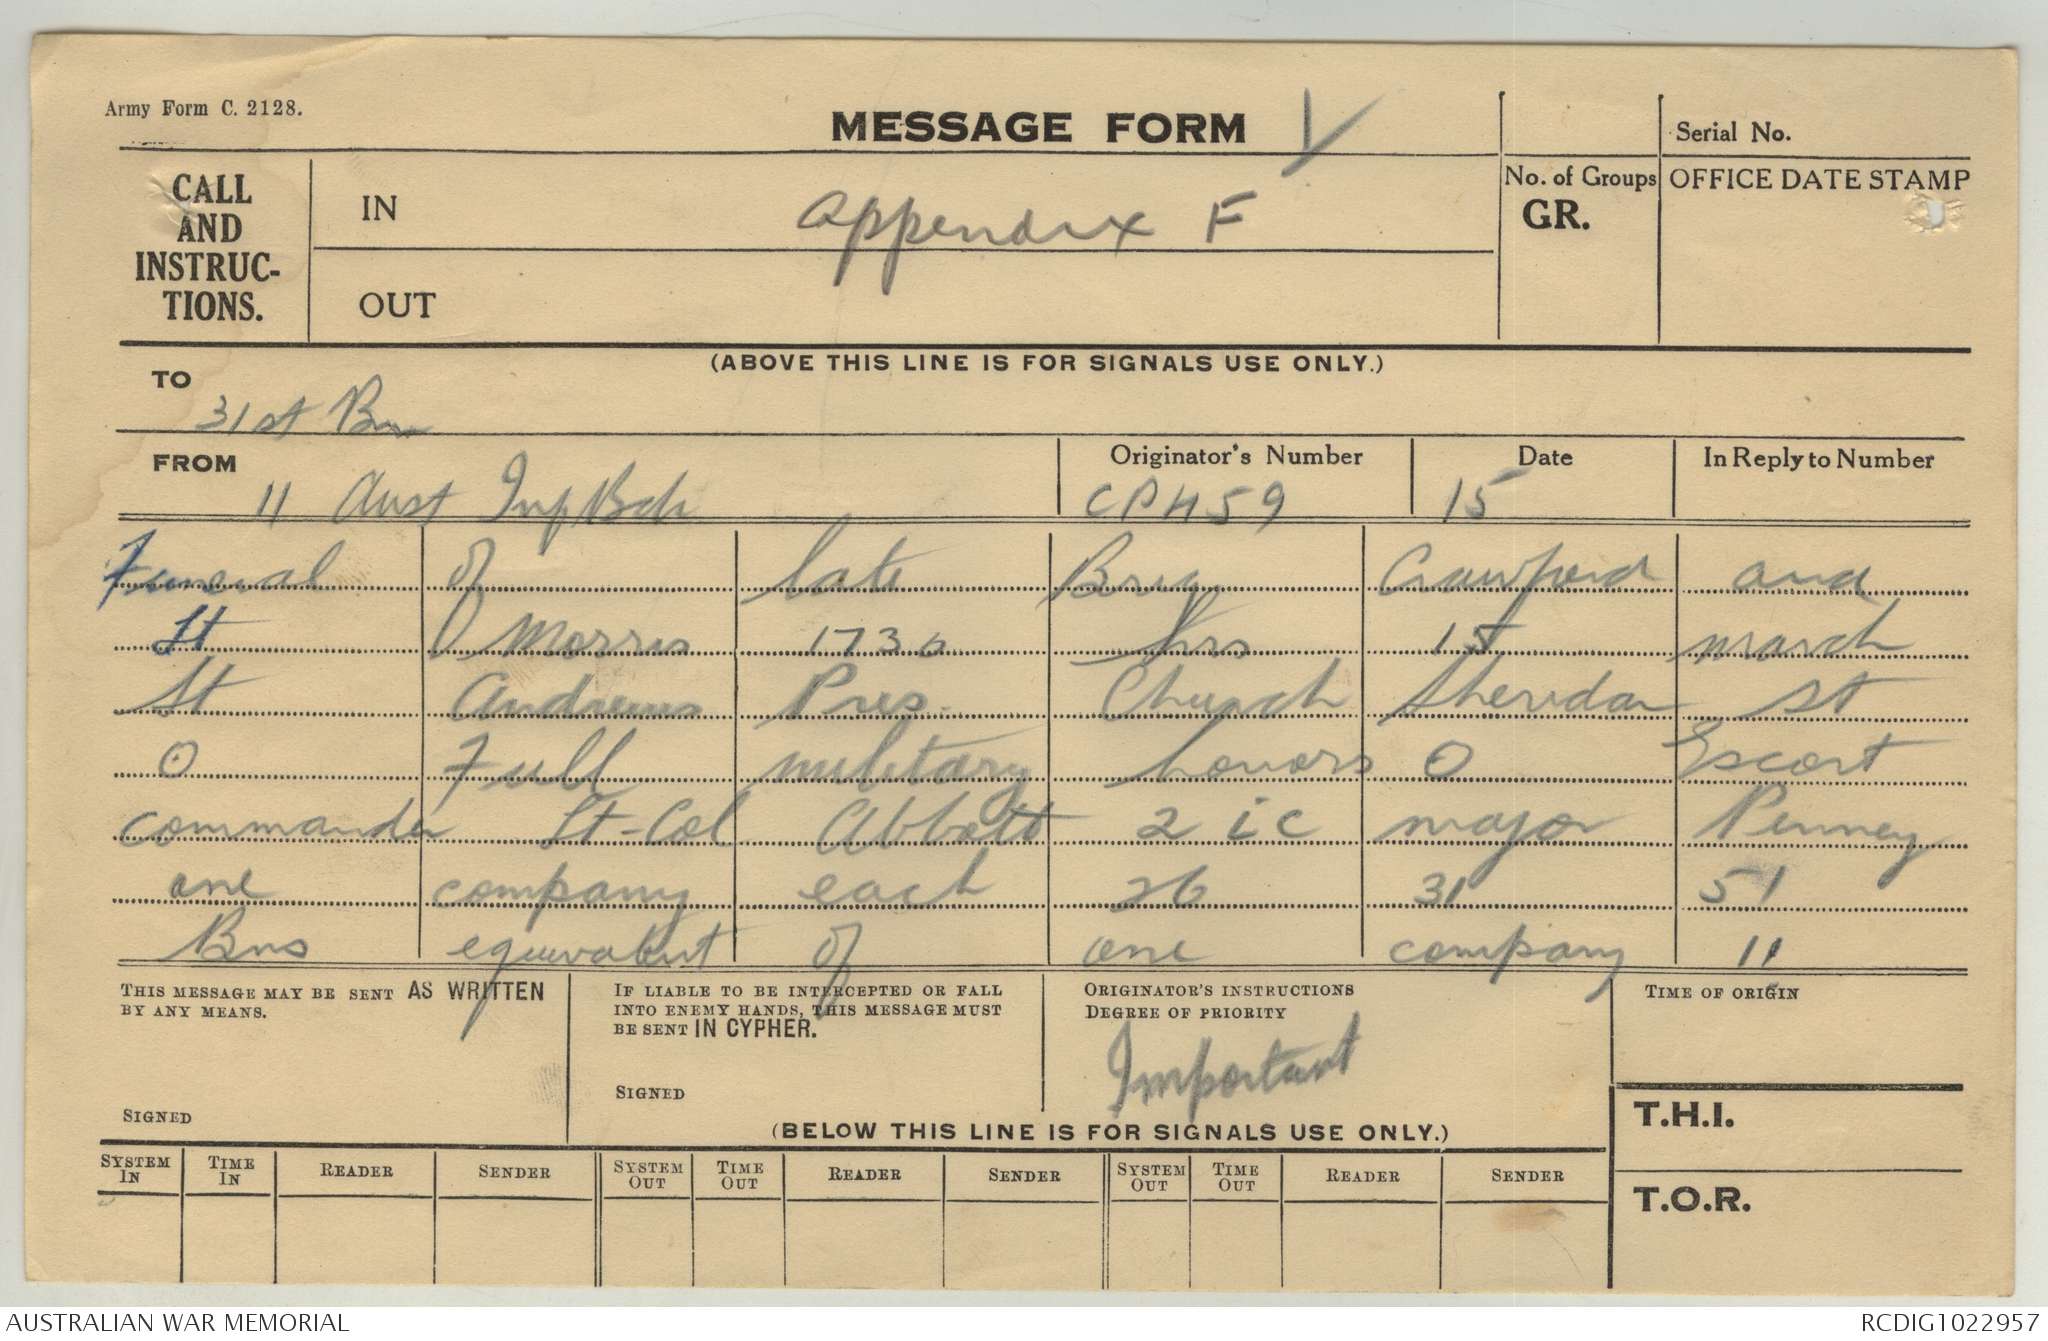 Army Form C. 2128.
MESSAGE FORM
Serial No.
CALL AND INSTRUC-TIONS.
IN
Appendix F
No. of Groups
GR.
OFFICE DATE STAMP
OUT
(ABOVE THIS LINE IS FOR SIGNALS USE ONLY.)
TO
31st Bn
FROM
11 Aust Inf Bde
Originator's Number
CPH59
Date
15
In Reply to Number
Funeral of late Brig Crawford and
Lt Morris 1730 hrs 15 march
St Andrews Pres. Church Sheridan St
O Full military honors O Escort
commander Lt-Col Abbott 2 i c major Penney
one company each 26 31 51
Bns equivalent of one company 11
THIS MESSAGE MAY BE SENT AS WRITTEN
BY ANY MEANS.
SIGNED
IF LIABLE TO BE INTERCEPTED OR FALL
INTO ENEMY HANDS, THIS MESSAGE MUST
BE SENT IN CYPHER.
SIGNED
ORIGINATOR'S INSTRUCTIONS
DEGREE OF PRIORITY
Important
TIME OF ORIGIN
T.H.I.
T.O.R.
(BELOW THIS LINE IS FOR SIGNALS USE ONLY.)
SYSTEM IN TIME IN READER SENDER SYSTEM OUT TIME OUT READER SENDER SYSTEM OUT TIME OUT READER SENDER
AUSTRALIAN WAR MEMORIAL
RCDIG1022957